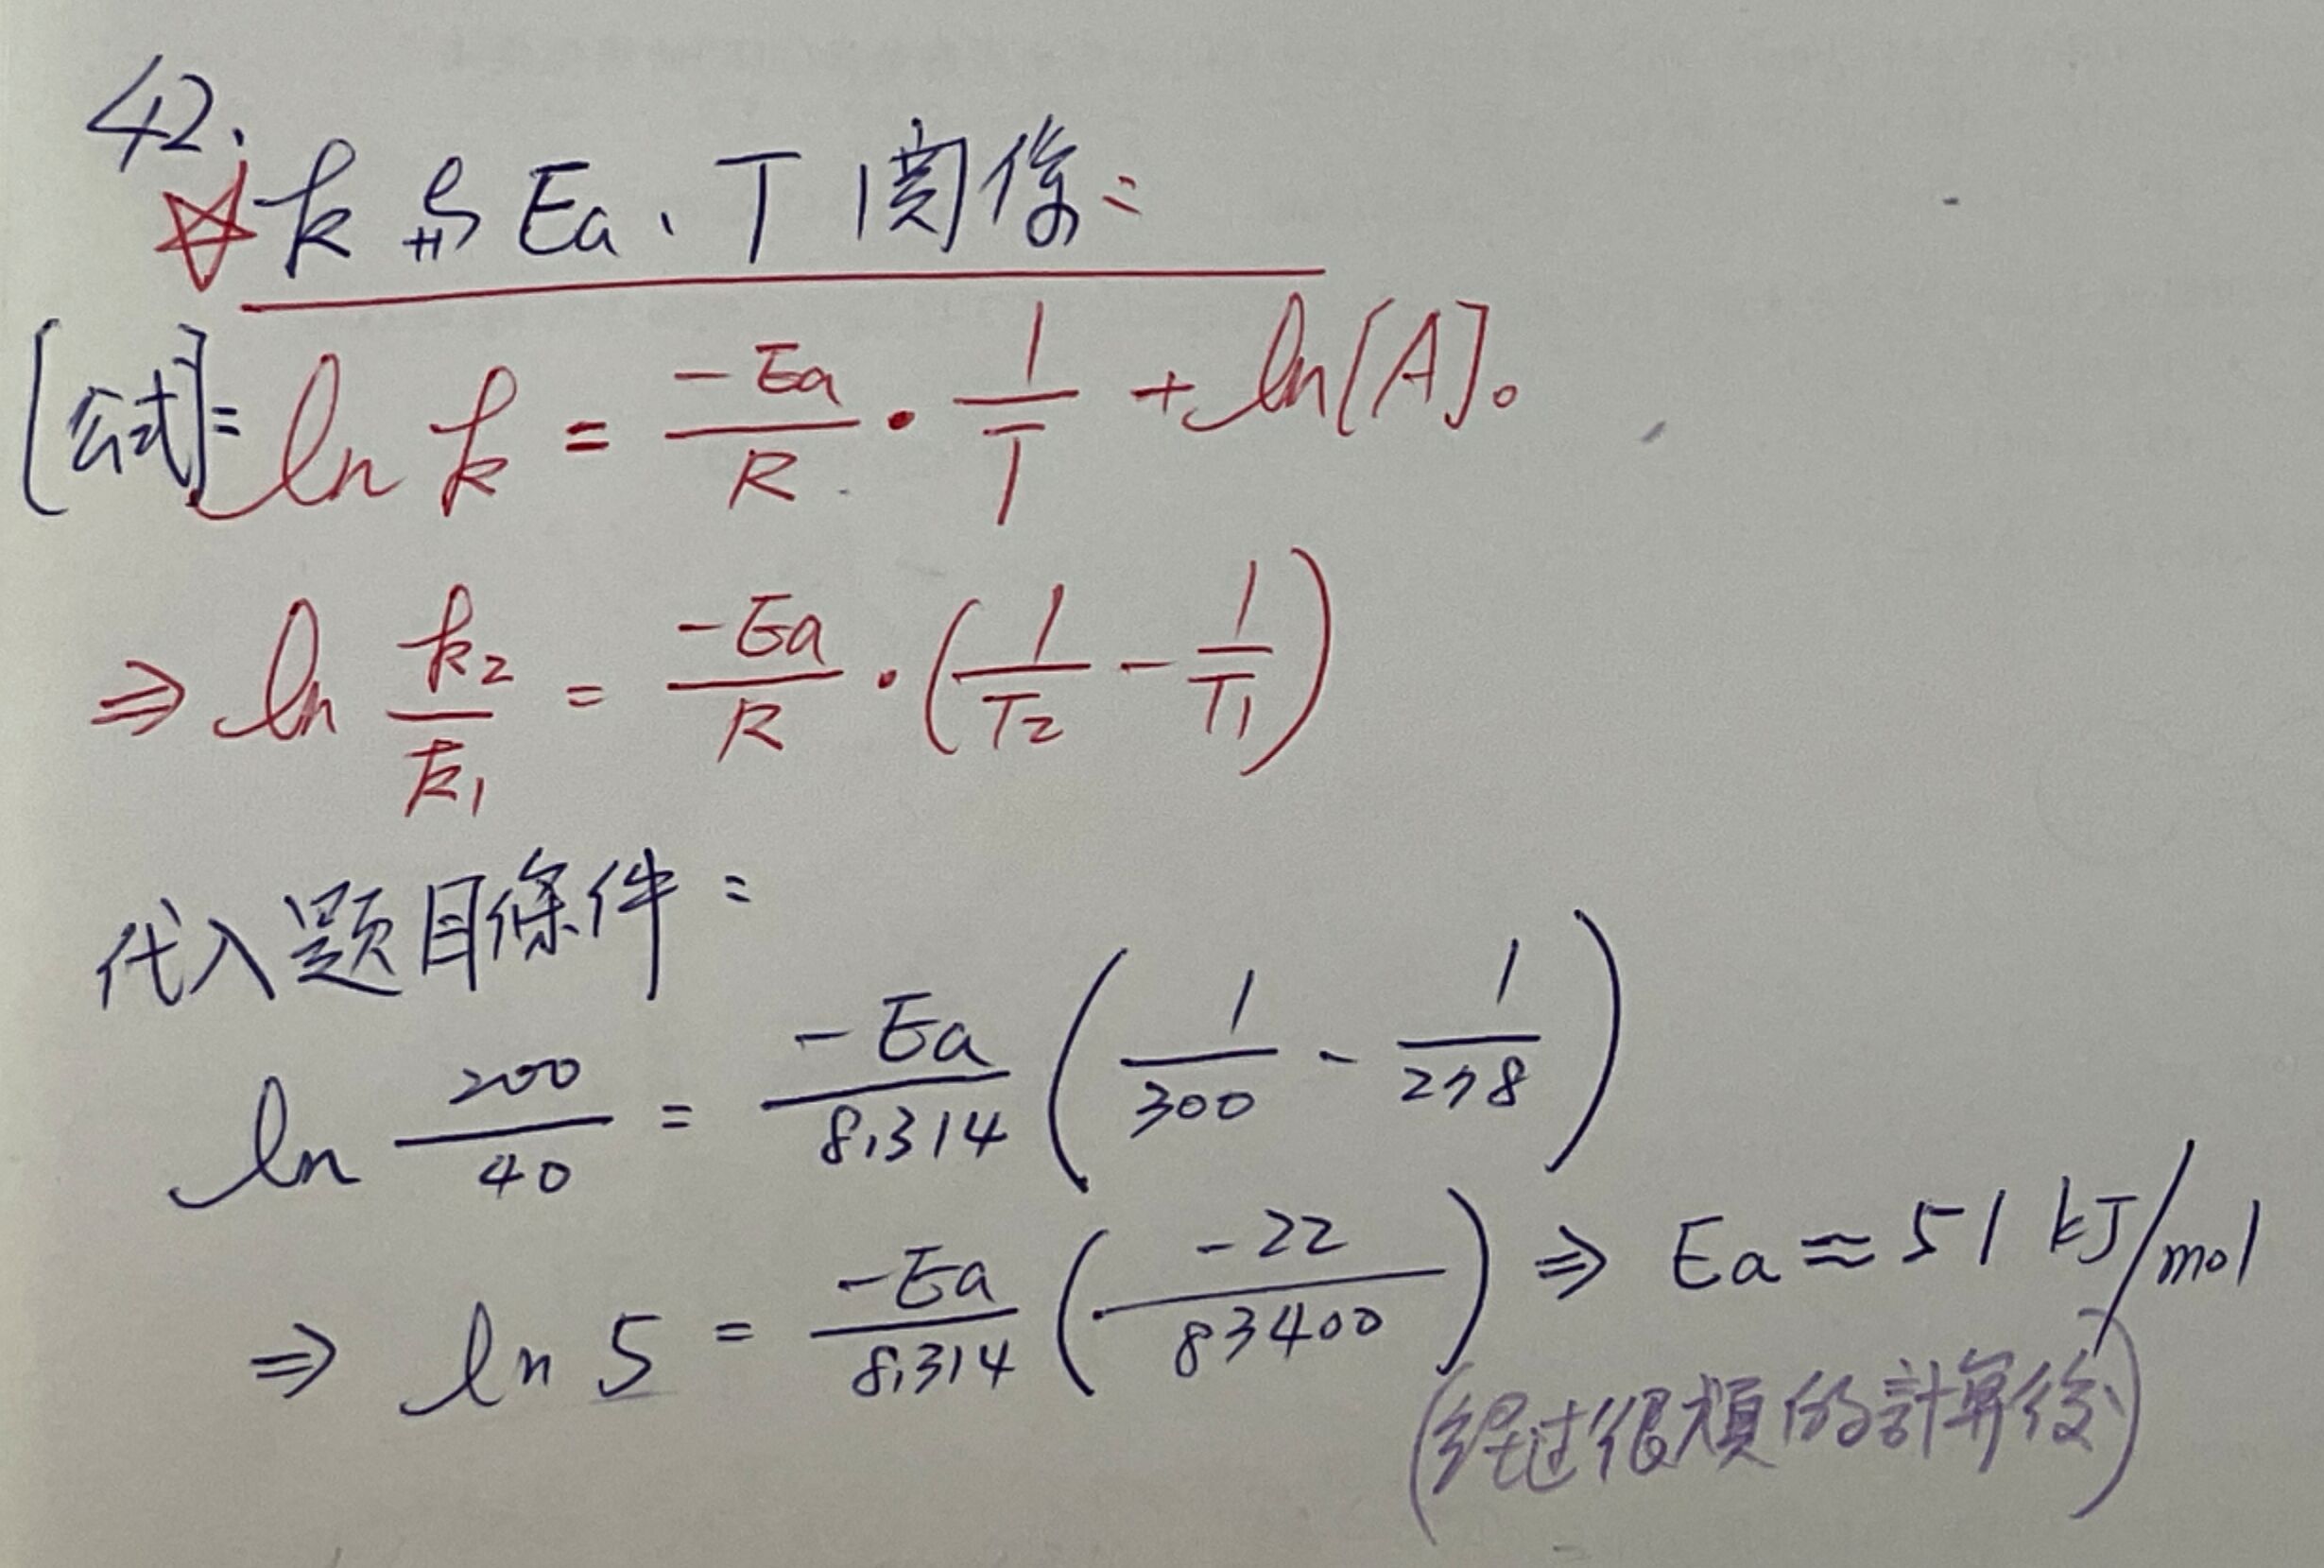 42.
☆ k 与 Ea、T 関係:
[公式]: ln k = -Ea/R · 1/T + ln[A]。
⇒ ln k₂/k₁ = -Ea/R · (1/T₂ - 1/T₁)
代入题目條件:
ln 200/40 = -Ea/8.314 (1/300 - 1/278)
⇒ ln 5 = -Ea/8.314 (-22/83400) ⇒ Ea ≈ 51 kJ/mol
(經过很煩的計算後)